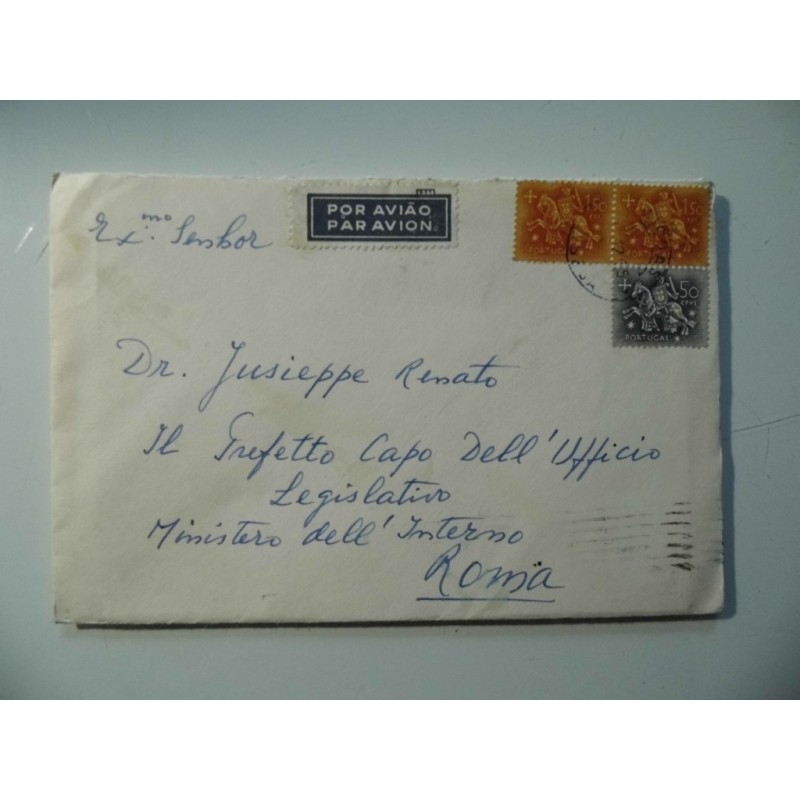 Exmo. Senhor
POR AVIÃO
PAR AVION
1$50
1$50
$50
CTVS
PORTUGAL
Dr. Jusieppe Renato
Il Prefetto Capo Dell'Ufficio
Legislativo
Ministero dell'Interno
Roma